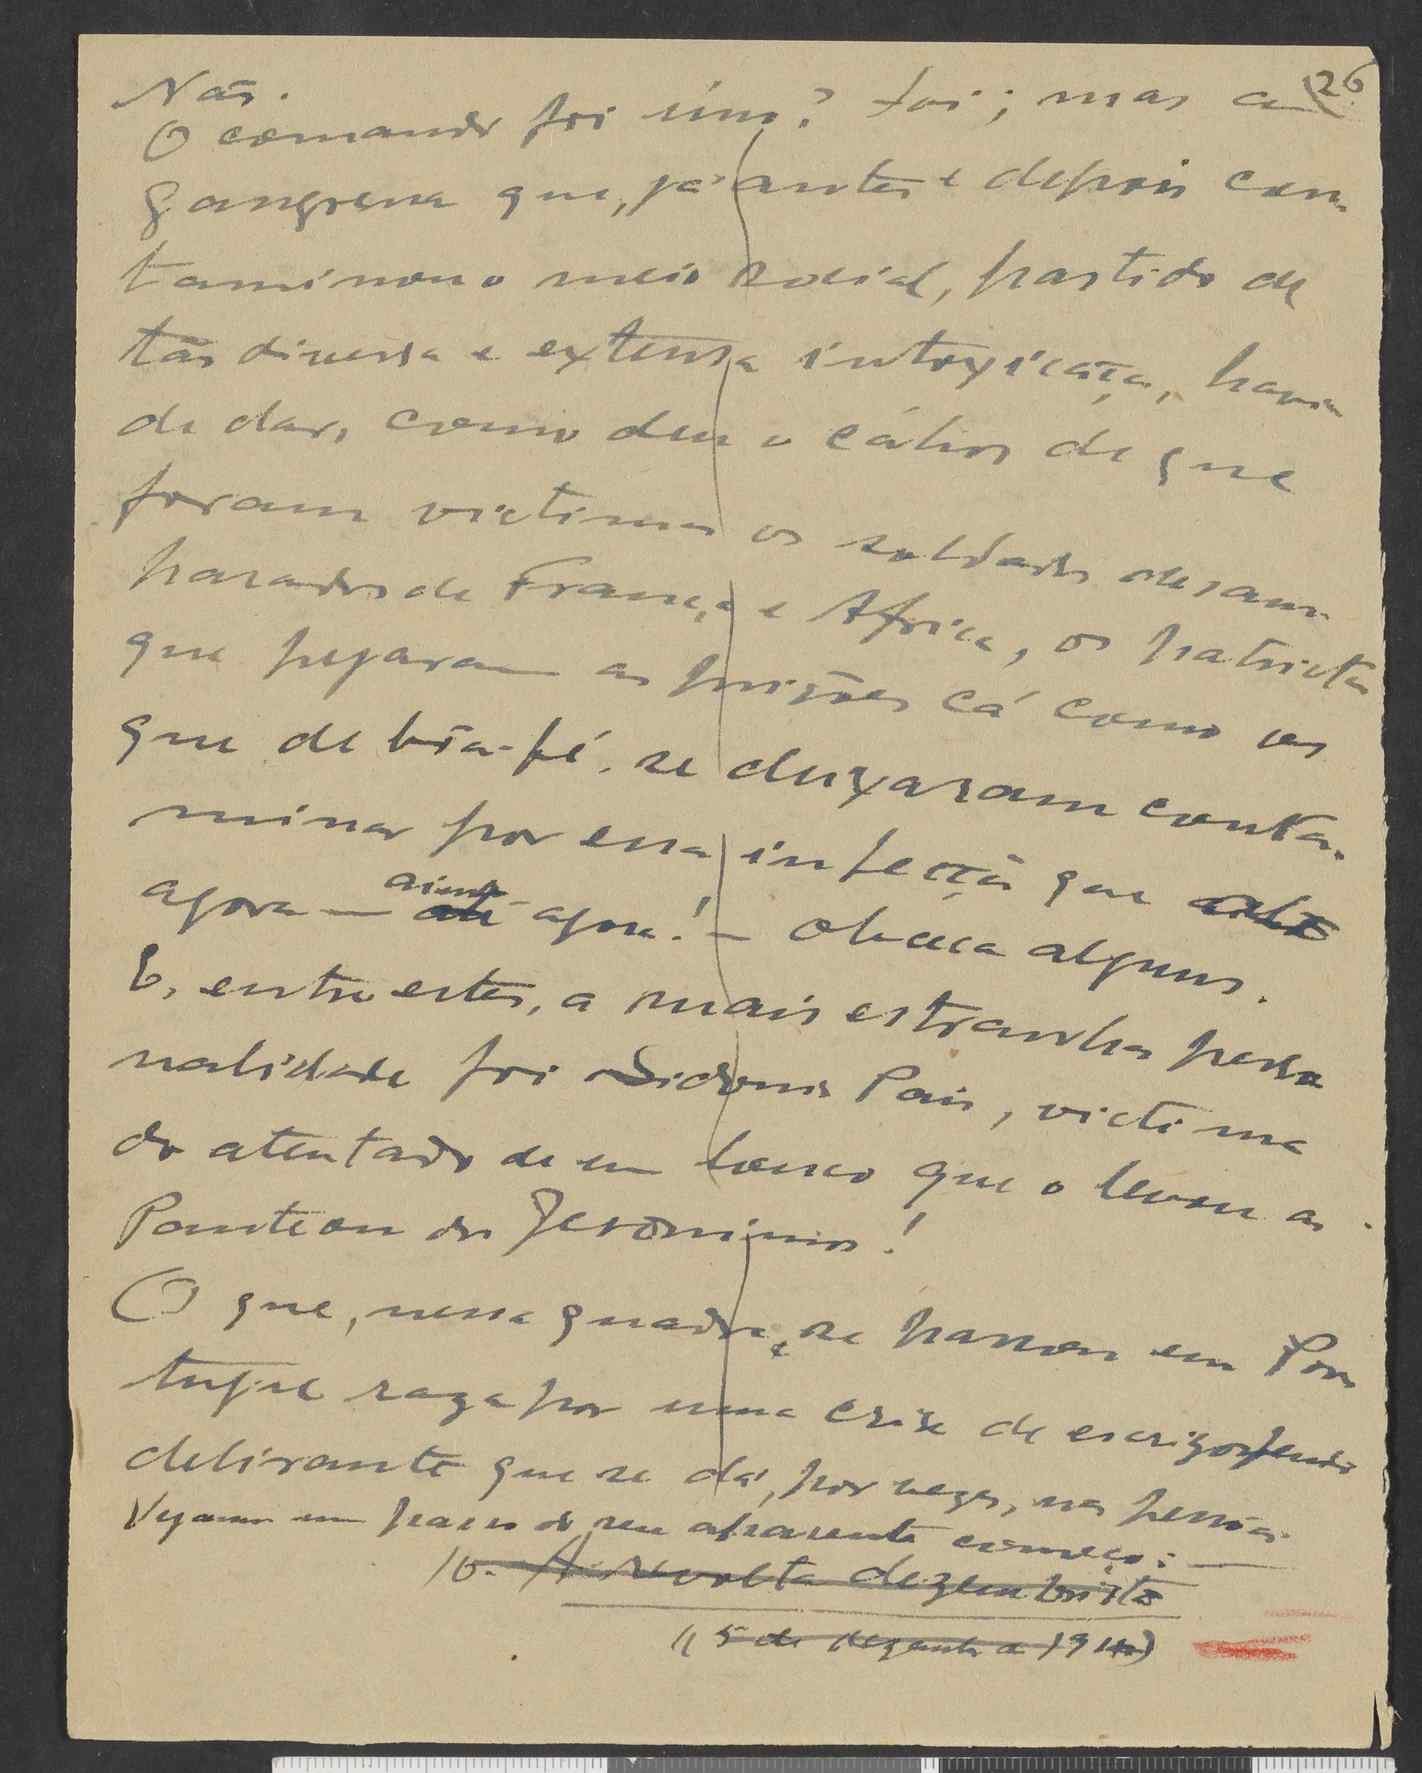 26
Não.
O comando foi um? Foi; mas a
gangrena que, já antes e depois con-
taminou o meio social, partido de
tão diversa e extensa intoxicação, havia
de dar, como deu o cáhos de que
foram victimas os soldados desam-
parados de França e Africa, os patriotas
que pejaram as prisões cá como os
que de bôa-fé se deixaram conta-
minar por essa infecção que até
agora — até ainda agora! — obceca alguns.
E, entre estes, a mais estranha perso
nalidade foi Sidonio Pais, victima
do atentado de um louco que o levou ao
Panteon dos Jeronimos!
O que, nessa quadra, se passou em Por
tugal raza por uma crise de
delirante que se dá, por vezes, nas pessôas.
Vejamos um pouco do seu aparente começo: —
16. A Revolta dezembrista
(5 de dezembro de 1917)